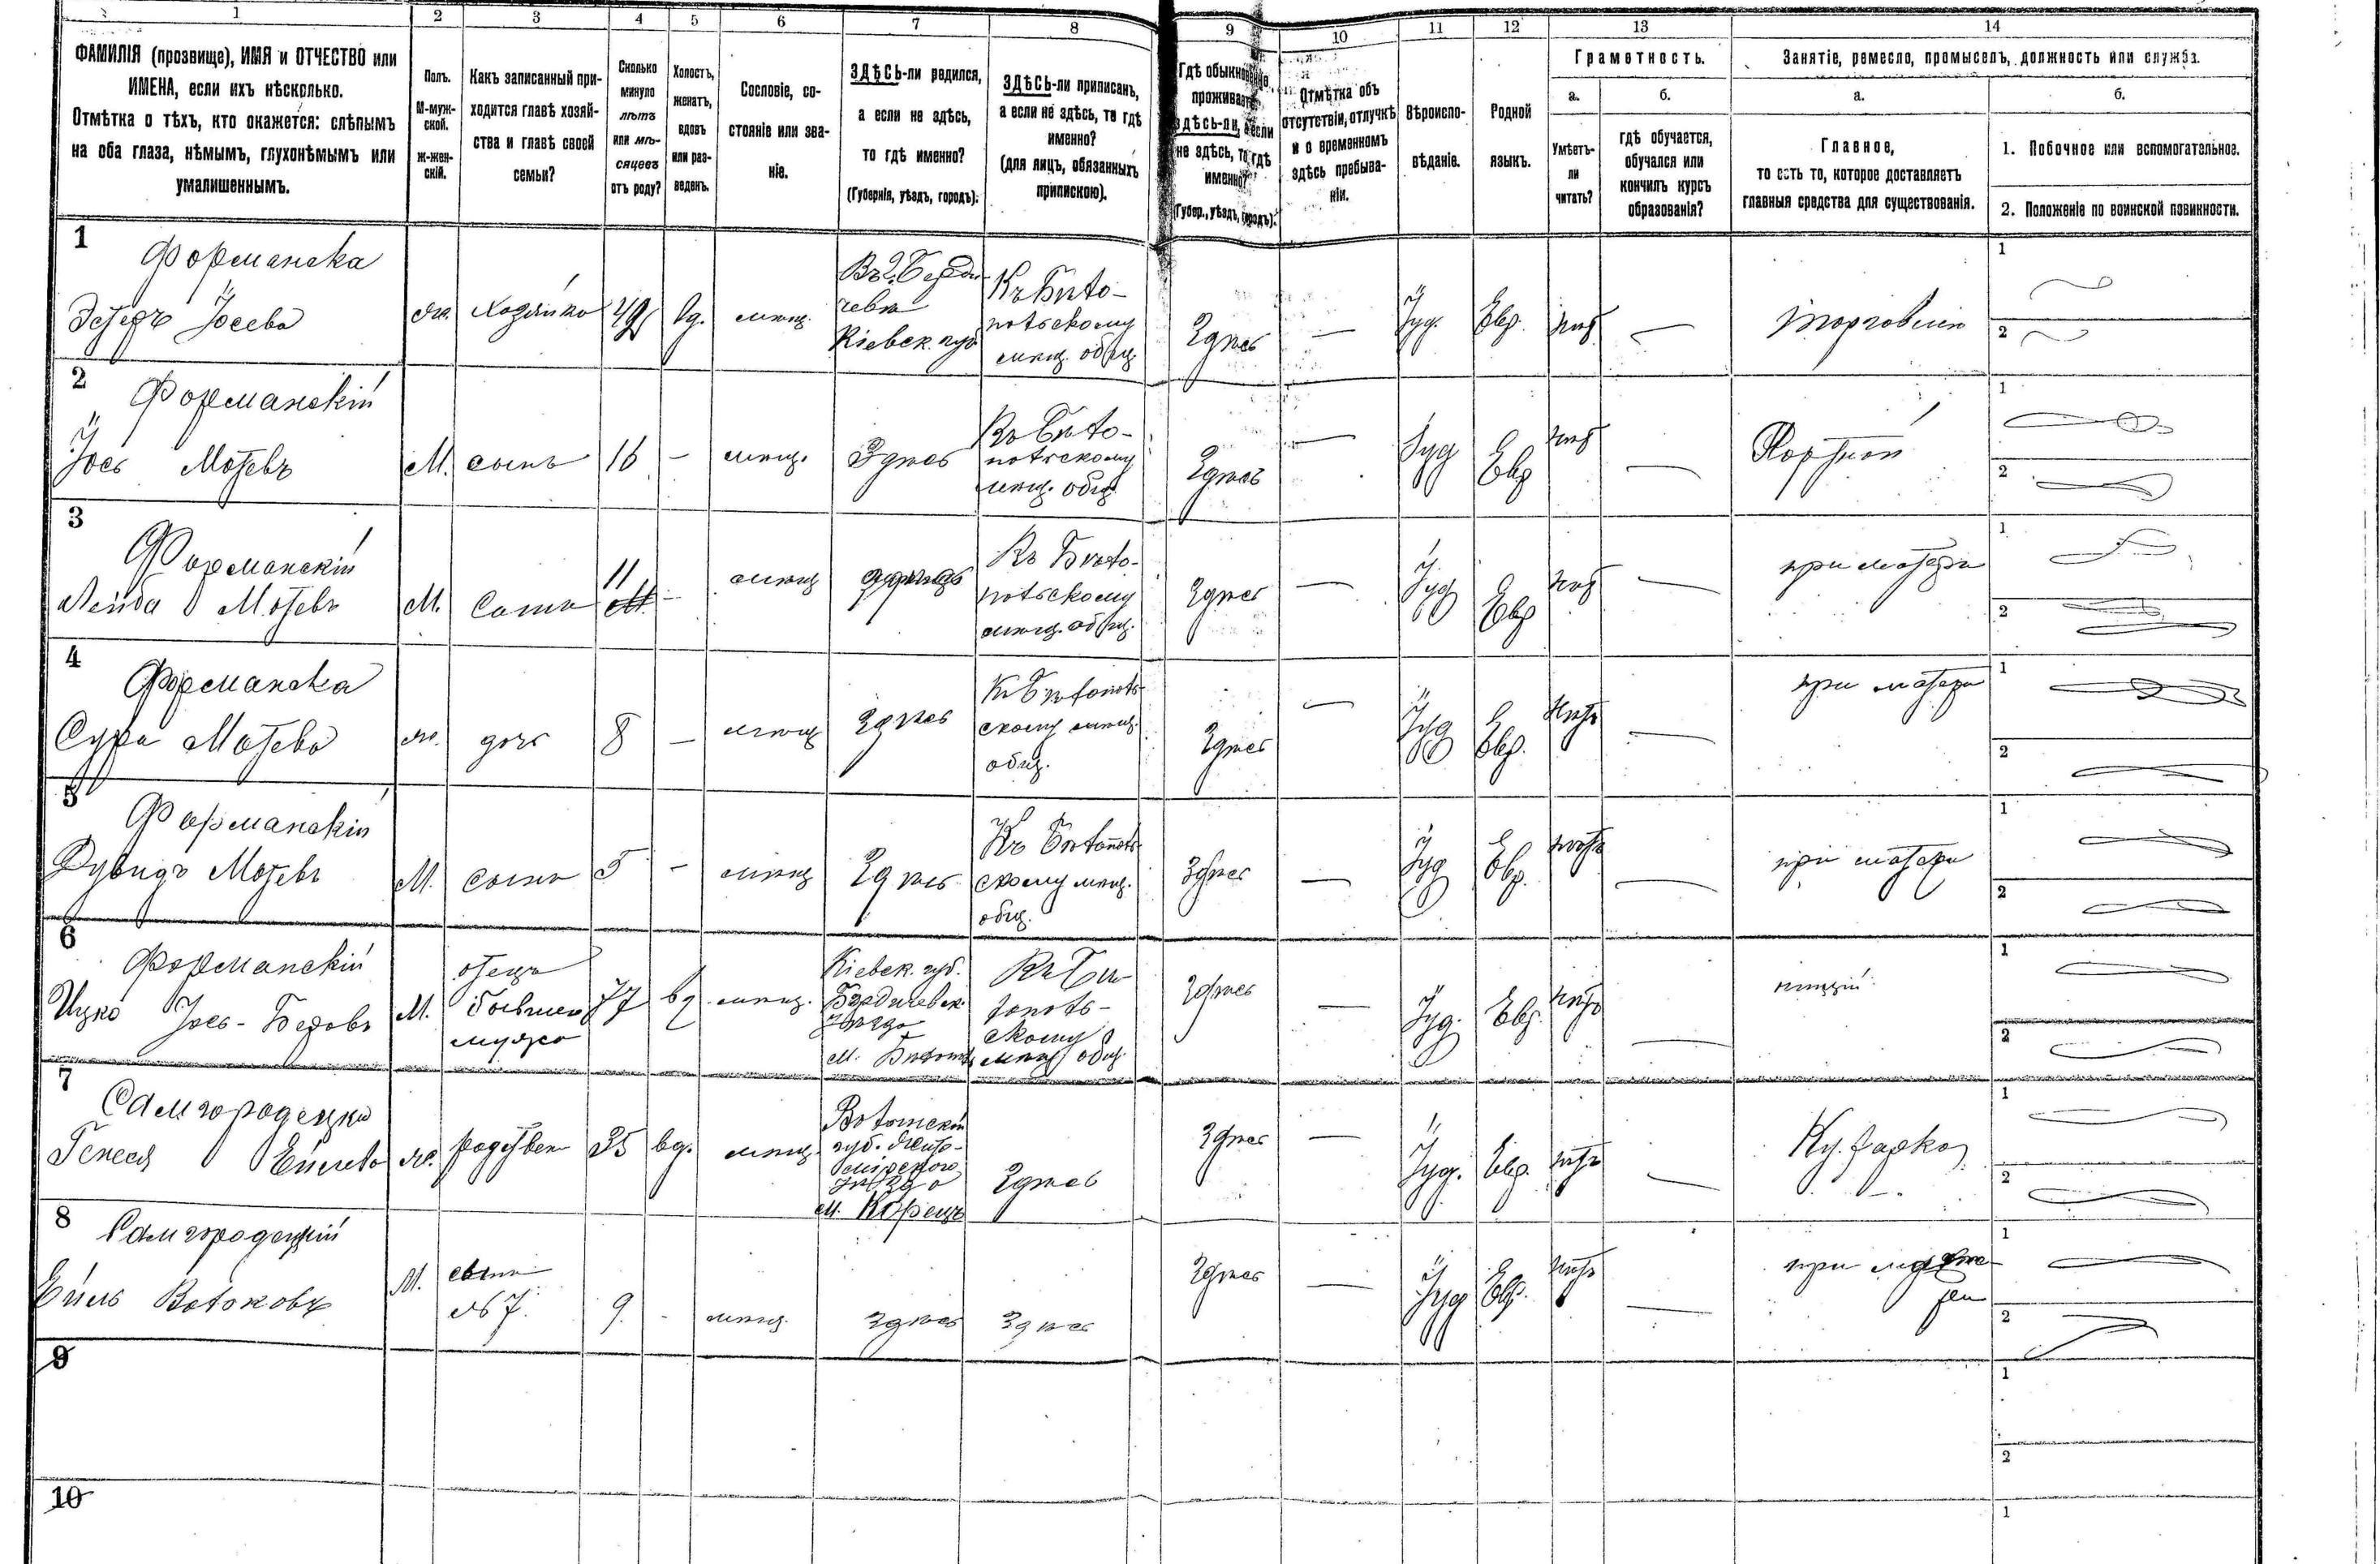 1 2 3 4 5 6 7 8 9 10 11 12 13 14
ФАМИЛІЯ (прозвище), ИМЯ и ОТЧЕСТВО или
ИМЕНА, если ихъ нѣсколько.
Отмѣтка о тѣхъ, кто окажется: слѣпымъ
на оба глаза, нѣмымъ, глухонѣмымъ или
умалишеннымъ.
Полъ.
М-муж-
ской.
Ж-жен-
скій.
Какъ записанный при-
ходится главѣ хозяй-
ства и главѣ своей
семьи?
Сколько
минуло
лѣтъ
или мѣ-
сяцевъ
отъ роду?
Холостъ,
женатъ,
вдовъ
или раз-
веденъ.
Сословіе, со-
стояніе или зва-
ніе.
ЗДѢСЬ-ли родился,
а если не здѣсь,
то гдѣ именно?
(Губернія, уѣздъ, городъ).
ЗДѢСЬ-ли приписанъ,
а если не здѣсь, то гдѣ
именно?
(для лицъ, обязанныхъ
припискою).
Гдѣ обыкновенно
проживаетъ:
здѣсь-ли, а если
не здѣсь, то гдѣ
именно?
(Губер., уѣздъ, городъ).
Отмѣтка объ
отсутствіи, отлучкѣ
и о временномъ
здѣсь пребыва-
ніи.
Вѣроиспо-
вѣданіе.
Родной
языкъ.
Грамотность.
а.
Умѣетъ-
ли
читать?
б.
гдѣ обучается,
обучался или
кончилъ курсъ
образованія?
Занятіе, ремесло, промыселъ, должность или служба.
а.
Главное,
то есть то, которое доставляетъ
главныя средства для существованія.
б.
1. Побочное или вспомогательное.
2. Положеніе по воинской повинности.
1
Форманска
Эстеръ Іосева
ж. хозяйка вд. мѣщ.
Въ г. Берди-
чевѣ
Кіевск. губ
мѣщ. общ.
Здѣсь — Іуд. Евр. нѣт — торговлею
1
2
2
Форманскій
Іось Мотевъ
М. сынъ 16 - мѣщ. Здѣсь
мѣщ. общ.
Здѣсь — Іуд Евр нѣт — Портной
1
2
3
Форманскій
Лейба Мотевъ
М. Сынъ 11 - мѣщ здѣсь
мѣщ. общ.
Здѣсь — Іуд Евр нѣт — при матери
1
2
4
Форманска
Сура Мотева
ж. дочь 8 — мѣщ Здѣсь
скому мѣщ.
общ.
Здѣсь — Іуд Евр. нѣтъ — при матери
1
2
5
Форманскій
Дувидъ Мотевъ
М. сынъ 5 - мѣщ Здѣсь
скому мѣщ.
общ.
Здѣсь — Іуд Евр. нѣтъ — при матери
1
2
6
Форманскій
Ицко Іось-Беровъ
М.
отецъ
бывшаго
мужа
77 вд мѣщ.
Кіевск. губ.
Бердичевск.
уѣзда
м.
скому
мѣщ общ.
Здѣсь — Іуд. Евр. нѣтъ — нищій
1
2
7
Самгородецка
Генеся
ж. родствен 35 вд. мѣщ.
Волынскій
губ.
уѣзда
м. Корецъ
Здѣсь
Здѣсь — Іуд. Евр. нѣтъ — Кухарка
1
2
8
Самгородецкій
М.
сынъ
№ 7.
9. - мѣщ. здѣсь здѣсь
Здѣсь — Іуд Евр. нѣтъ — при
1
2
9
1
2
10
1